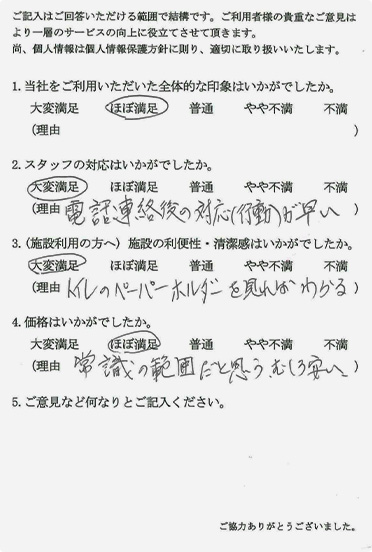 ご記入はご回答いただける範囲で結構です。ご利用者様の貴重なご意見は
より一層のサービスの向上に役立てさせて頂きます。
尚、個人情報は個人情報保護方針に則り、適切に取り扱いいたします。
1. 当社をご利用いただいた全体的な印象はいかがでしたか。
大変満足 ほぼ満足 普通 やや不満 不満
(理由 )
2. スタッフの対応はいかがでしたか。
大変満足 ほぼ満足 普通 やや不満 不満
(理由 電話連絡後の対応(行動)が早い
3. (施設利用の方へ) 施設の利便性・清潔感はいかがでしたか。
大変満足 ほぼ満足 普通 やや不満 不満
(理由 トイレのペーパーホルダーを見ればわかる )
4. 価格はいかがでしたか。
大変満足 ほぼ満足 普通 やや不満 不満
(理由 常識の範囲だと思う、むしろ安い )
5. ご意見など何なりとご記入ください。
ご協力ありがとうございました。